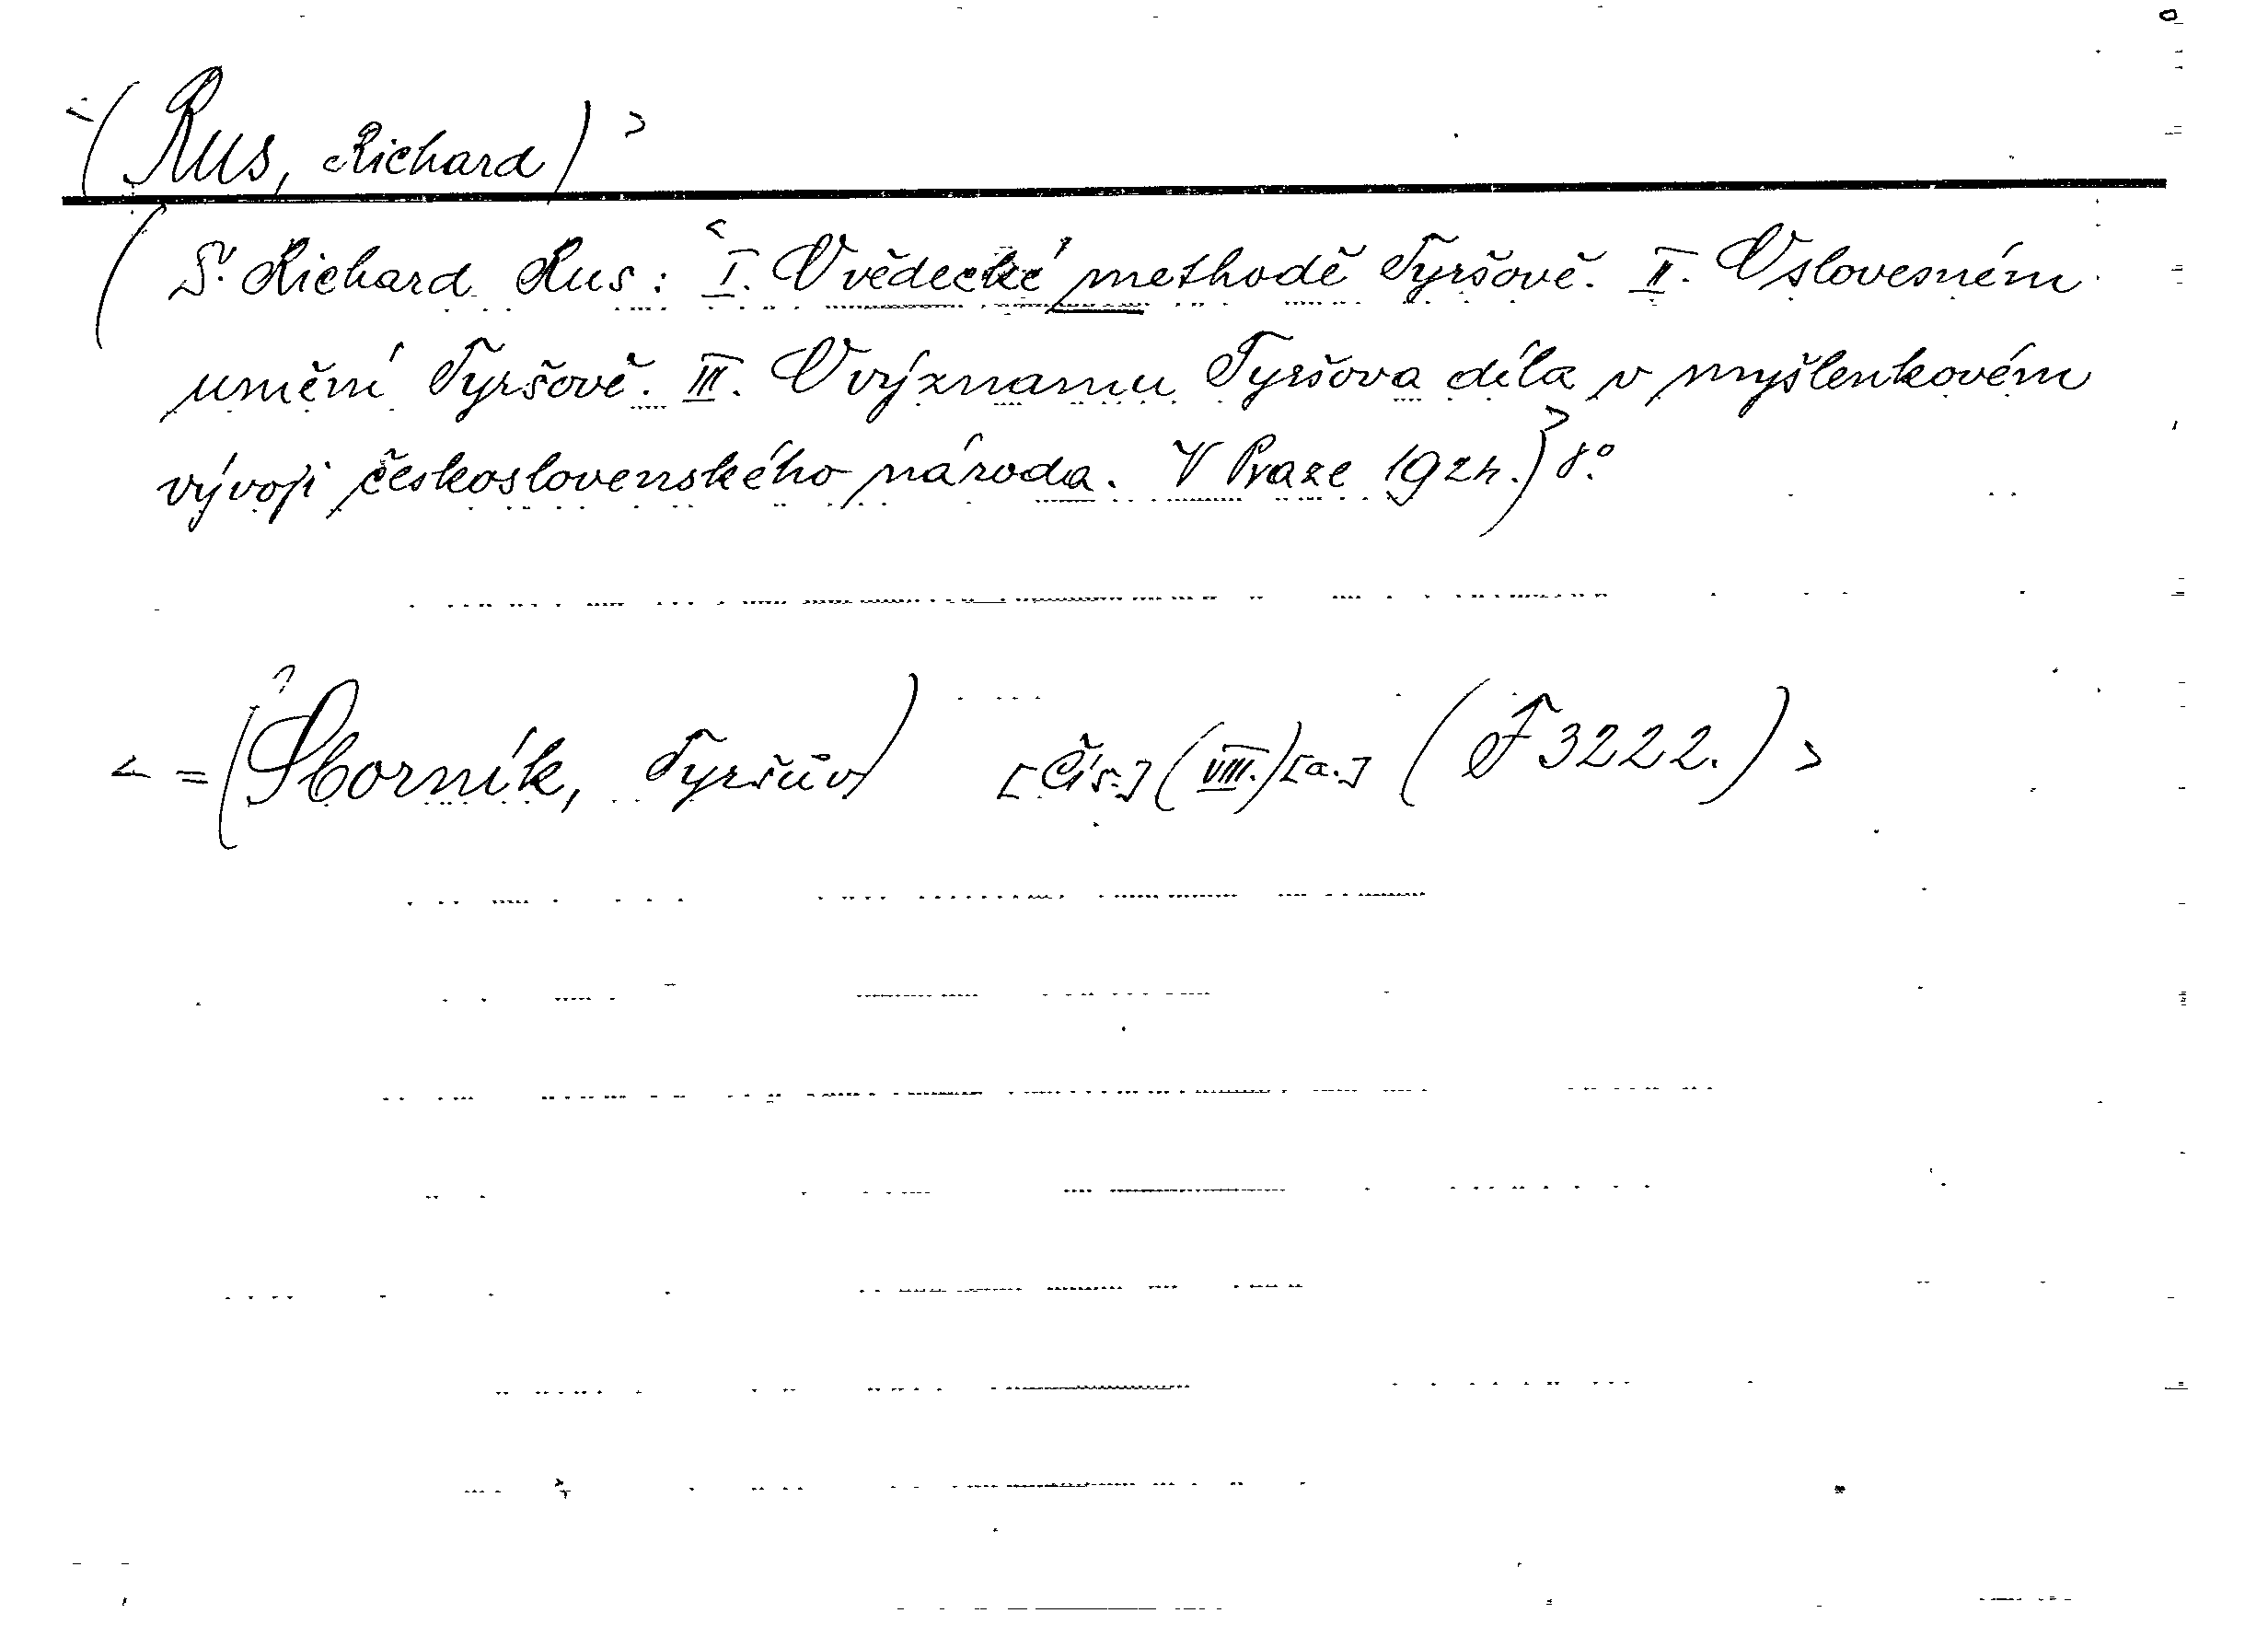 <(Rus, Richard)>
(Dr. Richard Rus: <I. O vědecké methodě Tyršově. II. O slovesném
umění Tyršově. III. O významu Tyršova díla v myšlenkovém
vývoji československého národa. V Praze 1924.>) 8°.
<=(Sborník, Tyršův) [Čís.] (VIII.) [a.] (F 3222.)>